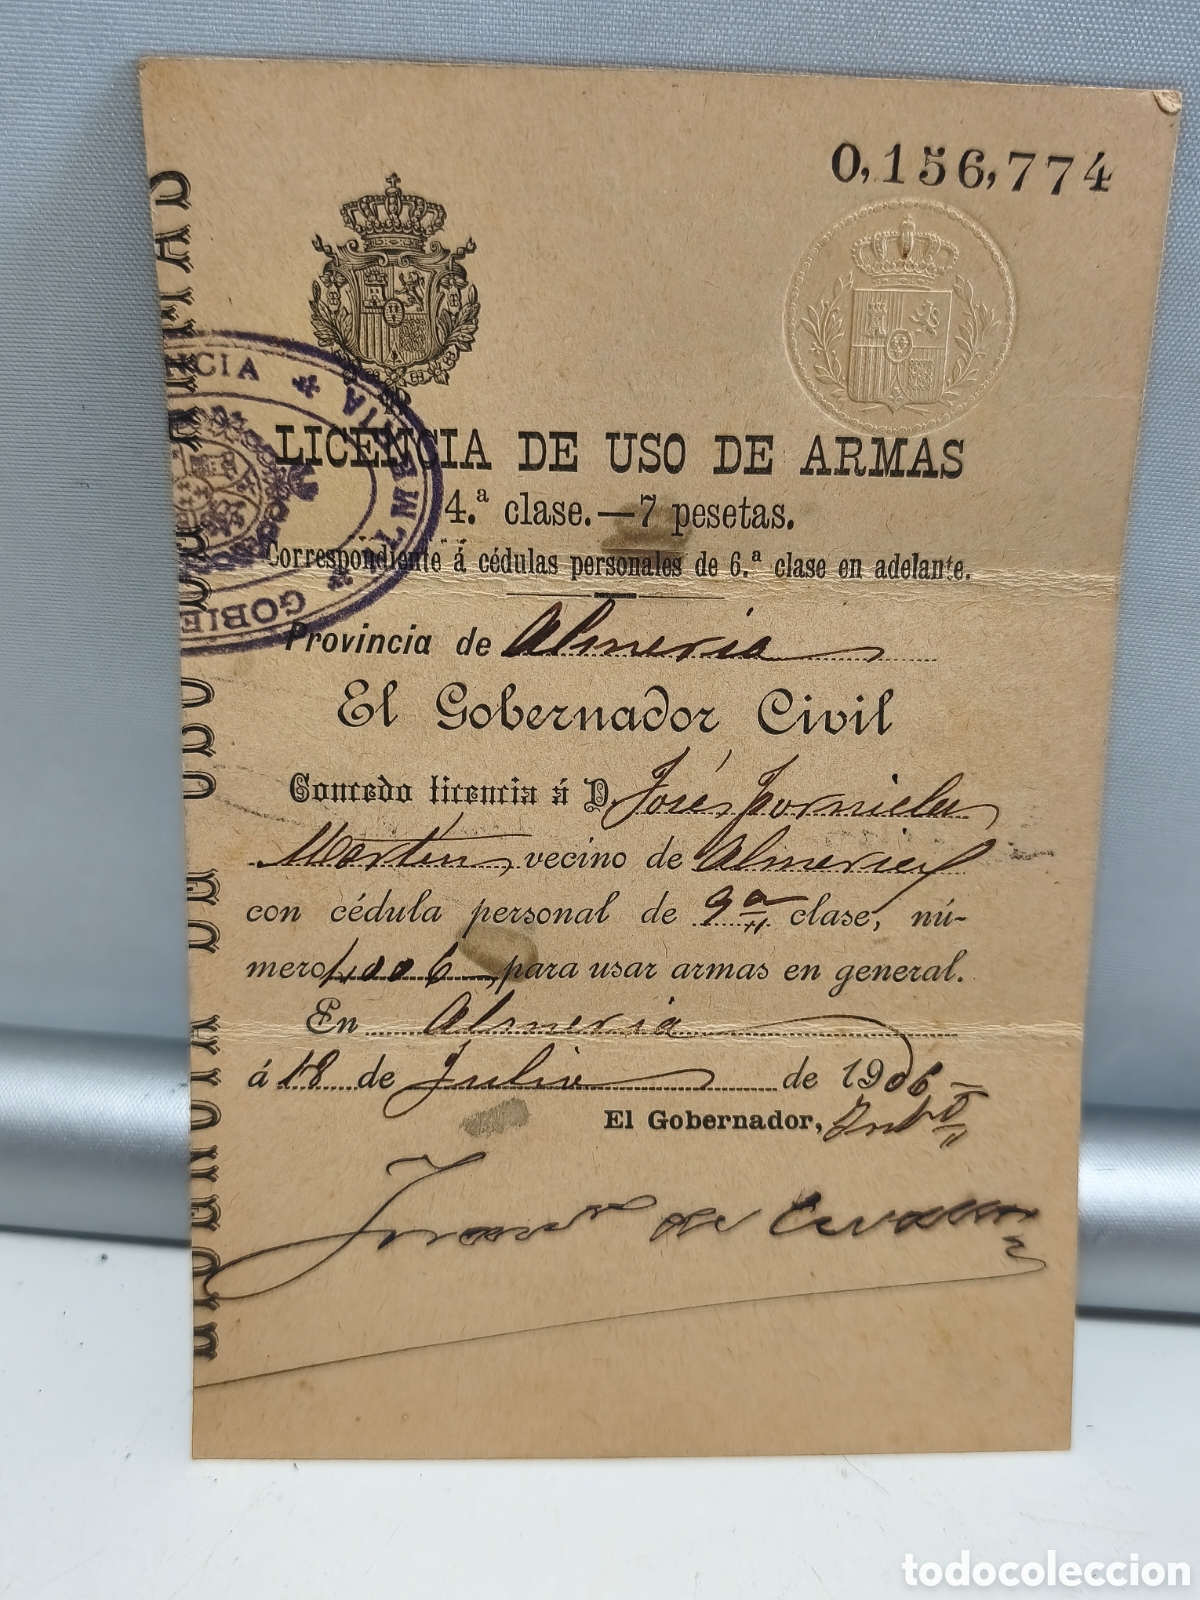 0,156,774
LICENCIA DE USO DE ARMAS
4.ª clase.—7 pesetas.
Correspondiente á cédulas personales de 6.ª clase en adelante.
Provincia de Almeria
El Gobernador Civil
Concedo licencia á D. José
Martin, vecino de Almeria
con cédula personal de 9ª clase, nú-
mero 1,006, para usar armas en general.
En Almeria
á 18 de Julio de 1906
El Gobernador, Intº
de
NCIA * ALMERIA * GOBIE
todocoleccion